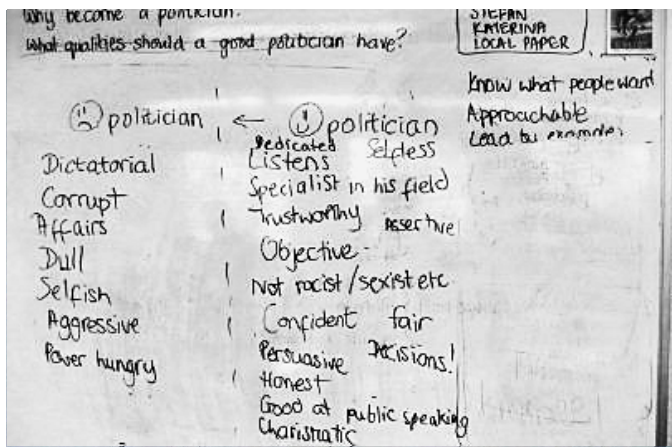 Why become a politician?
What qualities should a good politician have?
STEFAN
KATERINA
LOCAL PAPER
Know what people want
Approachable
Lead by example
politician ← politician
Dictatorial
Corrupt
Affairs
Dull
Selfish
Aggressive
Power hungry
Dedicated Selfless
Listens
Specialist in his field
Trustworthy Assertive
Objective
Not racist/sexist etc
Confident fair
Persuasive Decisions!
Honest
Good at public speaking
Charistratic